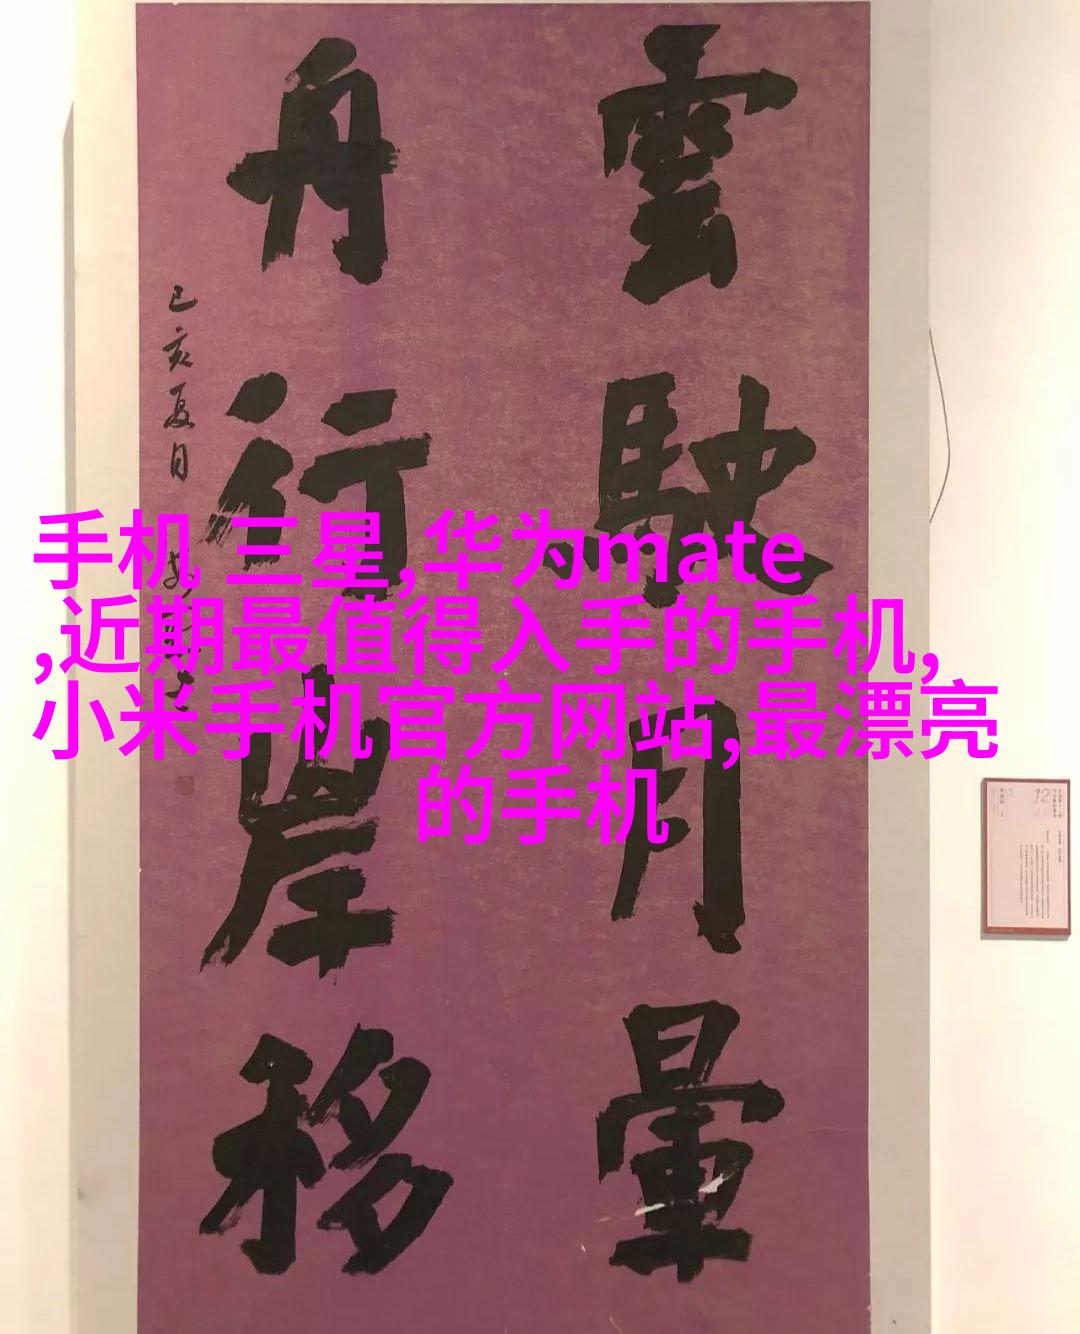 雲駛月暈
舟行岸移
己亥夏日
手机 三星,华为mate
,近期最值得入手的手机,
小米手机官方网站,最漂亮
的手机
12